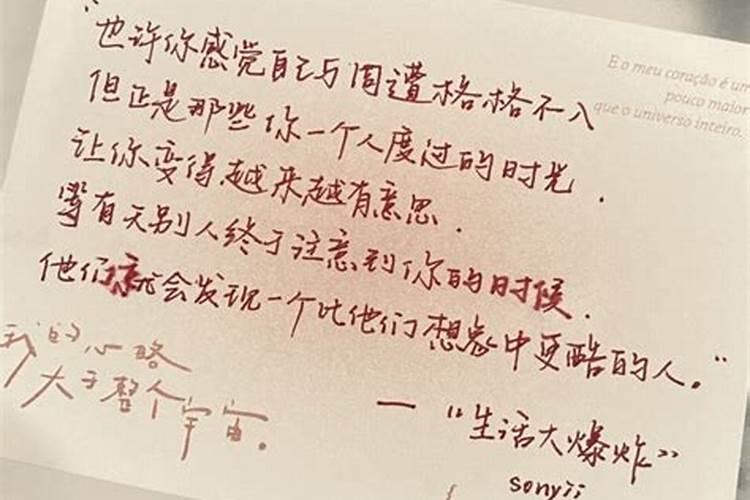 "也许你感觉自己与周遭格格不入
但正是那些你一个人度过的时光.
让你变得越来越有意思.
等有天别人终于注意到你的时候.
他们就会发现一个比他们想象中更酷的人."
— "生活大爆炸"
sonyii
E o meu coração é um
pouco maior
que o universo inteiro.
我的心略
大于整个宇宙。